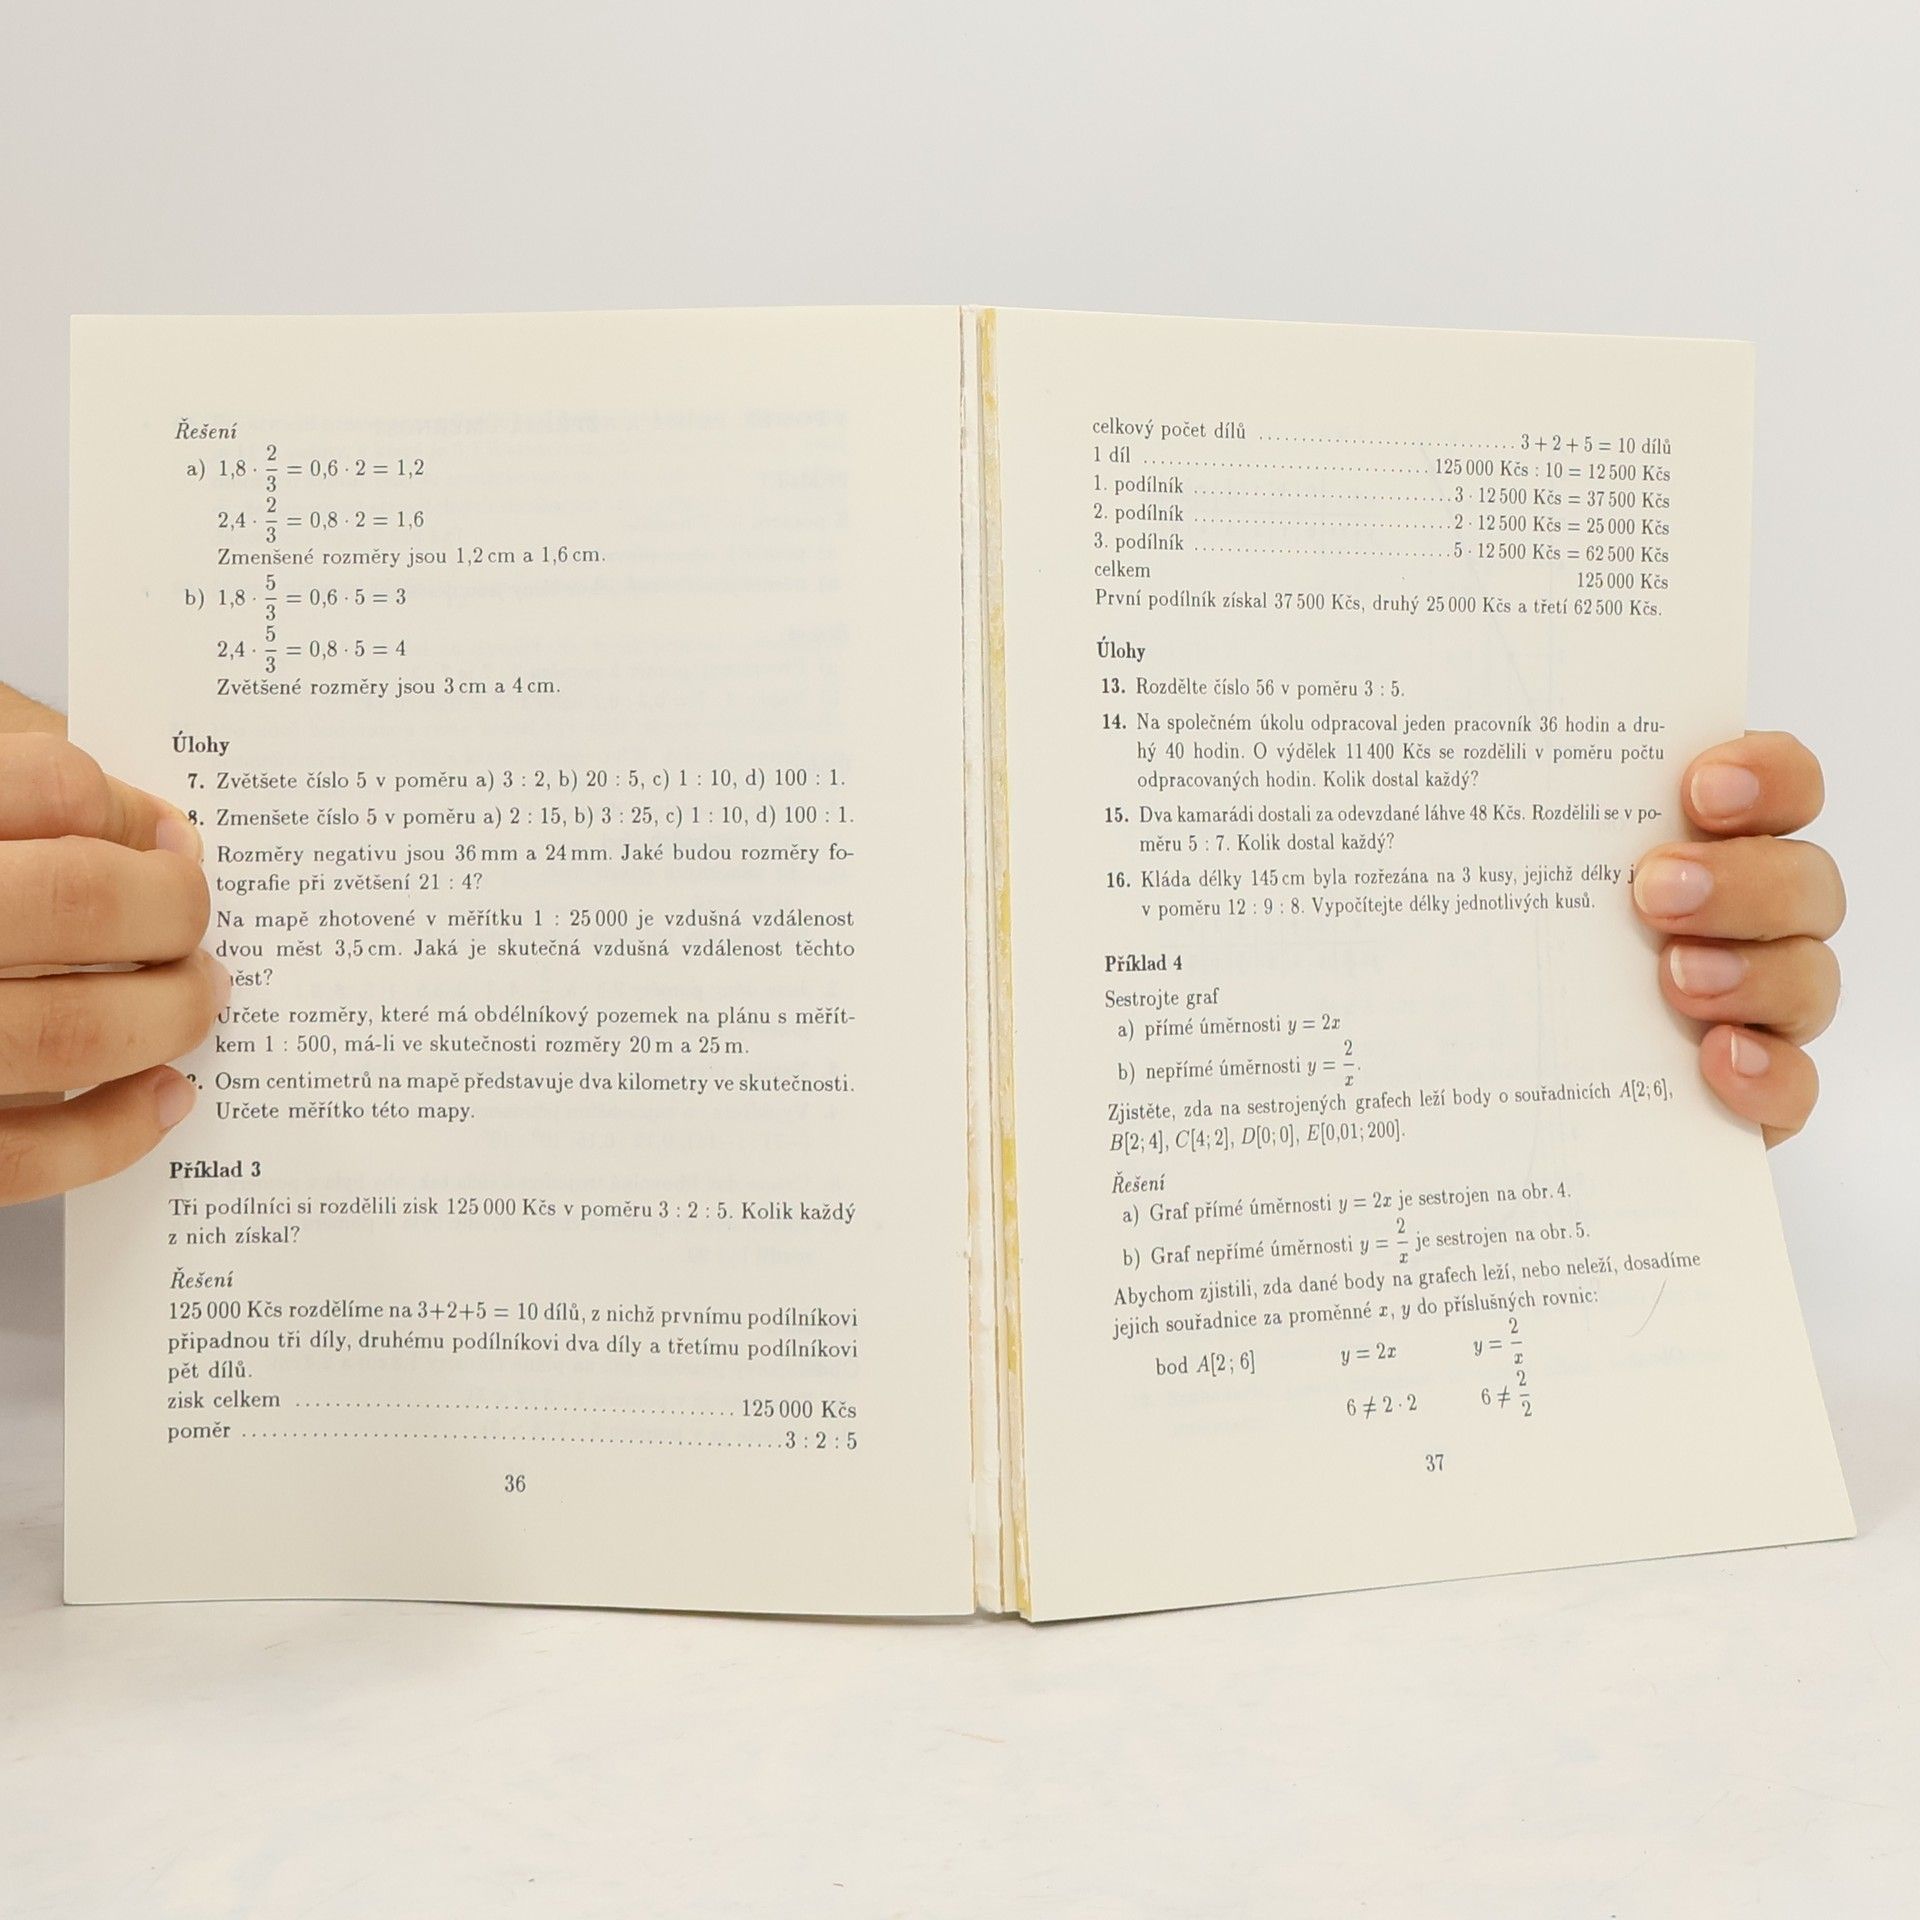 Řešení
a) 1,8 · 2/3 = 0,6 · 2 = 1,2
2,4 · 2/3 = 0,8 · 2 = 1,6
Zmenšené rozměry jsou 1,2 cm a 1,6 cm.
b) 1,8 · 5/3 = 0,6 · 5 = 3
2,4 · 5/3 = 0,8 · 5 = 4
Zvětšené rozměry jsou 3 cm a 4 cm.
Úlohy
7. Zvětšete číslo 5 v poměru a) 3 : 2, b) 20 : 5, c) 1 : 10, d) 100 : 1.
8. Zmenšete číslo 5 v poměru a) 2 : 15, b) 3 : 25, c) 1 : 10, d) 100 : 1.
Rozměry negativu jsou 36 mm a 24 mm. Jaké budou rozměry fo-
tografie při zvětšení 21 : 4?
Na mapě zhotovené v měřítku 1 : 25 000 je vzdušná vzdálenost
dvou měst 3,5 cm. Jaká je skutečná vzdušná vzdálenost těchto
měst?
Určete rozměry, které má obdélníkový pozemek na plánu s měřít-
kem 1 : 500, má-li ve skutečnosti rozměry 20 m a 25 m.
Osm centimetrů na mapě představuje dva kilometry ve skutečnosti.
Určete měřítko této mapy.
Příklad 3
Tři podílníci si rozdělili zisk 125 000 Kčs v poměru 3 : 2 : 5. Kolik každý
z nich získal?
Řešení
125 000 Kčs rozdělíme na 3+2+5 = 10 dílů, z nichž prvnímu podílníkovi
připadnou tři díly, druhému podílníkovi dva díly a třetímu podílníkovi
pět dílů.
zisk celkem ........................................ 125 000 Kčs
poměr ........................................ 3 : 2 : 5
36
celkový počet dílů .............................. 3 + 2 + 5 = 10 dílů
1 díl .............................. 125 000 Kčs : 10 = 12 500 Kčs
1. podílník .......................... 3 · 12 500 Kčs = 37 500 Kčs
2. podílník .......................... 2 · 12 500 Kčs = 25 000 Kčs
3. podílník .......................... 5 · 12 500 Kčs = 62 500 Kčs
celkem 125 000 Kčs
První podílník získal 37 500 Kčs, druhý 25 000 Kčs a třetí 62 500 Kčs.
Úlohy
13. Rozdělte číslo 56 v poměru 3 : 5.
14. Na společném úkolu odpracoval jeden pracovník 36 hodin a dru-
hý 40 hodin. O výdělek 11 400 Kčs se rozdělili v poměru počtu
odpracovaných hodin. Kolik dostal každý?
15. Dva kamarádi dostali za odevzdané láhve 48 Kčs. Rozdělili se v po-
měru 5 : 7. Kolik dostal každý?
16. Kláda délky 145 cm byla rozřezána na 3 kusy, jejichž délky
v poměru 12 : 9 : 8. Vypočítejte délky jednotlivých kusů.
Příklad 4
Sestrojte graf
a) přímé úměrnosti y = 2x
b) nepřímé úměrnosti y = 2/x.
Zjistěte, zda na sestrojených grafech leží body o souřadnicích A[2; 6],
B[2; 4], C[4; 2], D[0; 0], E[0,01; 200].
Řešení
a) Graf přímé úměrnosti y = 2x je sestrojen na obr. 4.
b) Graf nepřímé úměrnosti y = 2/x je sestrojen na obr. 5.
Abychom zjistili, zda dané body na grafech leží, nebo neleží, dosadíme
jejich souřadnice za proměnné x, y do příslušných rovnic:
bod A[2; 6] y = 2x y = 2/x
6 ≠ 2 · 2 6 ≠ 2/2
37